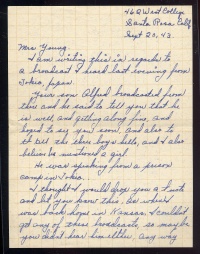 462 West College
Santa Rosa, Calif
Sept 21, 43
Mrs Young.
I am writing this in regards to
a broadcast I heard last evening from
Tokio, Japan.
Your son Alfred broadcasted from
there and he said to tell you that he
is well, and getting along fine, and
hoped to see you soon, and also to
tell the boys hello, and I also
believe he mentioned a girl.
He was speaking from a prison
camp in Tokio.
I thought I would drop you a
and let you know this, as when I
was back home in Kansas, I couldn't
get any of these broadcasts, so may be
you didn't hear him either, any way